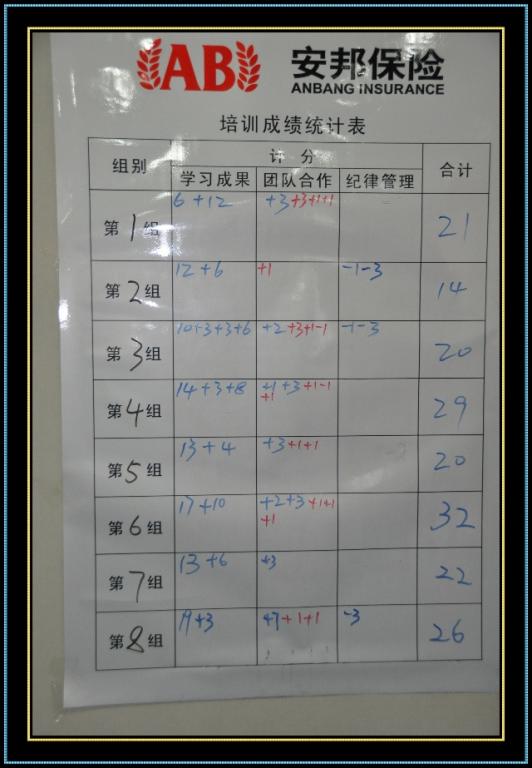 AB 安邦保险
ANBANG INSURANCE
培训成绩统计表
组别 计分 合计
学习成果 团队合作 纪律管理
第1组 6+12 +3+3+1+1 21
第2组 12+6 +1 -1-3 14
第3组 10+3+3+6 +2+3+1-1 -1-3 20
第4组 14+3+8 +1+3+1-1 29
+1
第5组 13+4 +3+1+1 20
第6组 17+10 +2+3+1+1 32
+1
第7组 13+6 +3 22
第8组 19+3 +7+1+1 -3 26